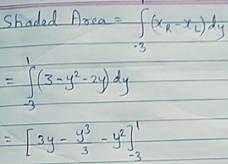 Shaded Area = ∫₋₃¹ (x_R - x_L) dy
= ∫₋₃¹ (3 - y² - 2y) dy
= [3y - y³/3 - y²]₋₃¹